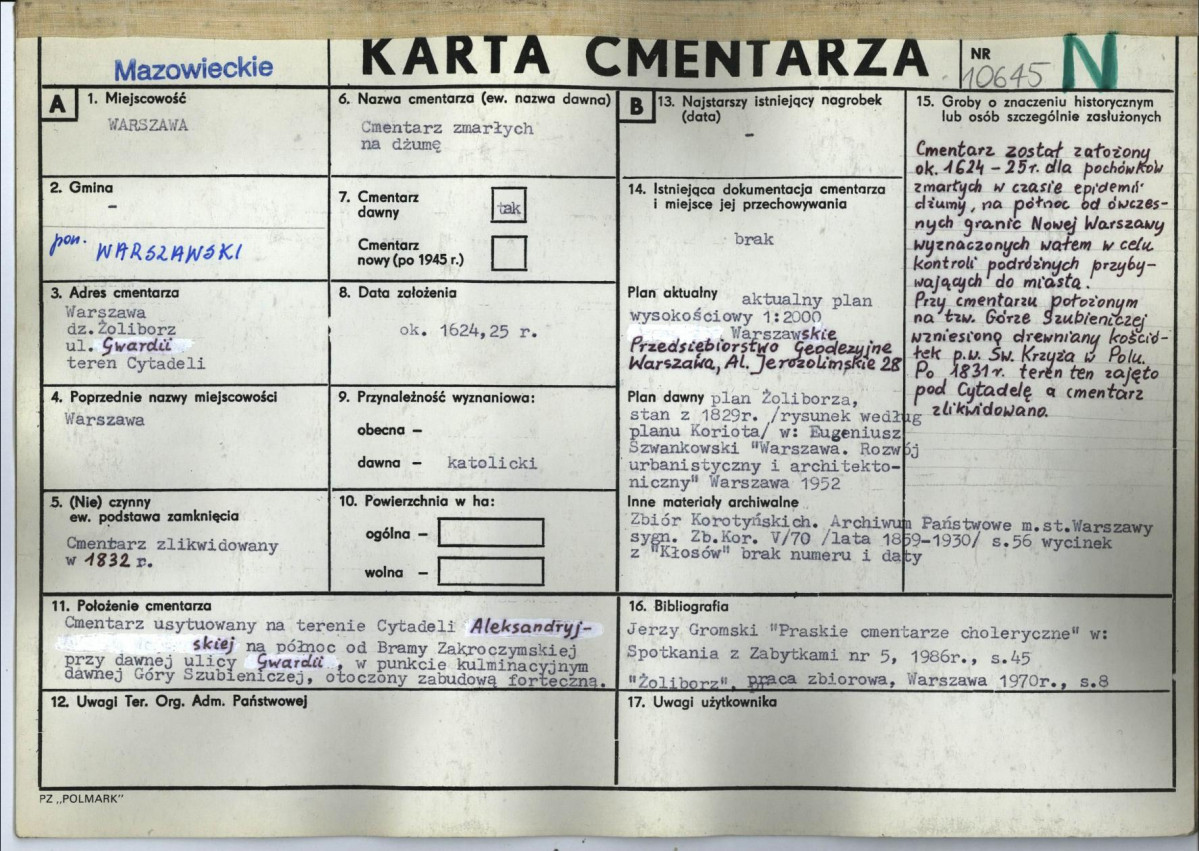 Mazowieckie
KARTA CMENTARZA
NR
10645
N
A
1. Miejscowość
WARSZAWA
2. Gmina
-
pow. WARSZAWSKI
3. Adres cmentarza
Warszawa
dz.Żoliborz
ul. Gwardii
teren Cytadeli
4. Poprzednie nazwy miejscowości
Warszawa
5. (Nie) czynny
ew. podstawa zamknięcia
Cmentarz zlikwidowany
w 1832 r.
6. Nazwa cmentarza (ew. nazwa dawna)
Cmentarz zmarłych
na dżumę
7. Cmentarz
dawny
tak
Cmentarz
nowy (po 1945 r.)
8. Data założenia
ok. 1624,25 r.
9. Przynależność wyznaniowa:
obecna –
dawna – katolicki
10. Powierzchnia w ha:
ogólna –
wolna –
11. Położenie cmentarza
Cmentarz usytuowany na terenie Cytadeli Aleksandryj-
skiej na północ od Bramy Zakroczymskiej
przy dawnej ulicy Gwardii, w punkcie kulminacyjnym
dawnej Góry Szubieniczej, otoczony zabudową forteczną.
12. Uwagi Ter. Org. Adm. Państwowej
B
13. Najstarszy istniejący nagrobek
(data)
-
14. Istniejąca dokumentacja cmentarza
i miejsce jej przechowywania
brak
Plan aktualny aktualny plan
wysokościowy 1:2000
Warszawskie
Przedsiębiorstwo Geodezyjne
Warszawa, Al. Jerozolimskie 28
Plan dawny plan Żoliborza,
stan z 1829r. /rysunek według
planu Koriota/ w: Eugeniusz
Szwankowski "Warszawa. Rozwój
urbanistyczny i architekto-
niczny" Warszawa 1952
Inne materiały archiwalne
Zbiór Korotyńskich. Archiwum Państwowe m.st.Warszawy
sygn. Zb.Kor. V/70 /lata 1859-1930/ s.56 wycinek
z "Kłosów" brak numeru i daty
15. Groby o znaczeniu historycznym
lub osób szczególnie zasłużonych
Cmentarz został założony
ok. 1624-25r. dla pochówków
zmarłych w czasie epidemii
dżumy, na północ od ówczes-
nych granic Nowej Warszawy
wyznaczonych wałem w celu
kontroli podróżnych przyby-
wających do miasta.
Przy cmentarzu położonym
na tzw. Górze Szubieniczej
wzniesiono drewniany kośció-
łek p.w. Św. Krzyża w Polu.
Po 1831r. teren ten zajęto
pod Cytadelę a cmentarz
zlikwidowano.
16. Bibliografia
Jerzy Gromski "Praskie cmentarze choleryczne" w:
Spotkania z Zabytkami nr 5, 1986r., s.45
"Żoliborz", praca zbiorowa, Warszawa 1970r., s.8
17. Uwagi użytkownika
PZ „POLMARK"